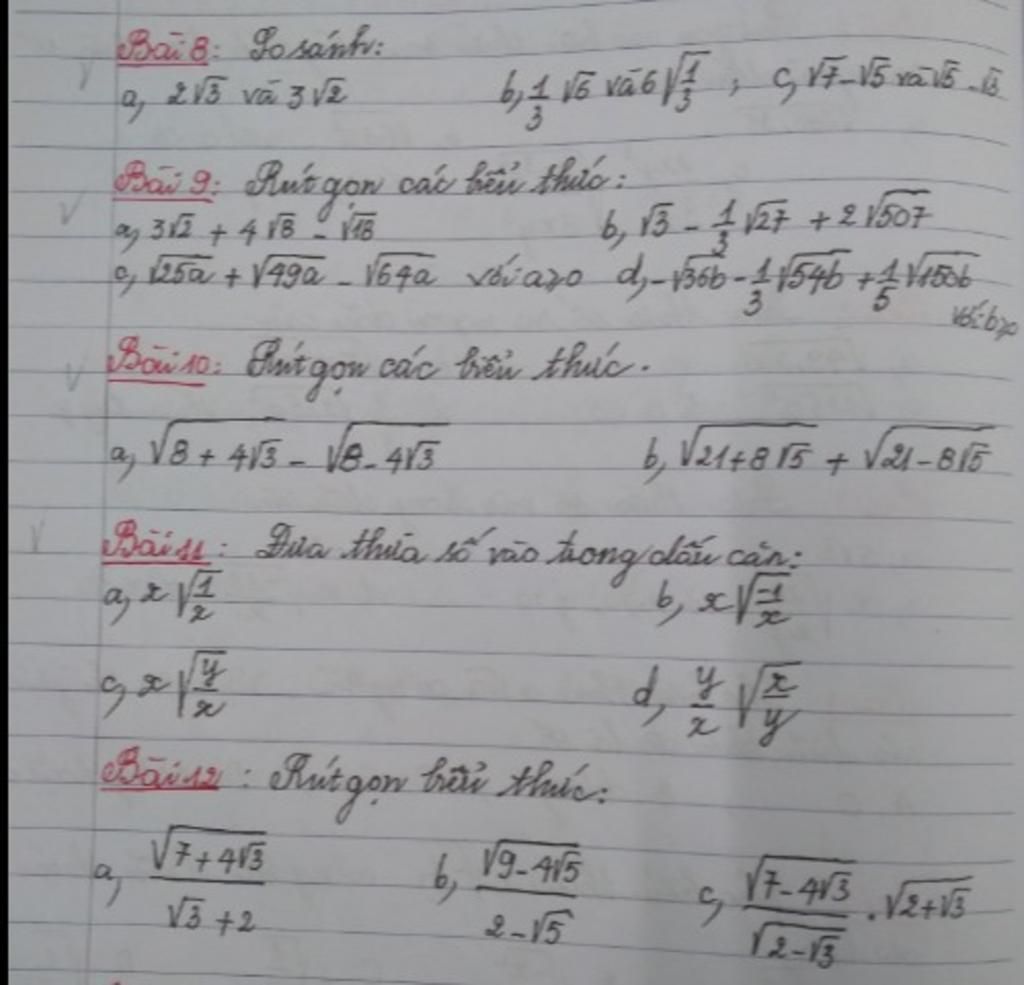 Bài 8: So sánh:
a, 2√3 và 3√2 b, 1/3 √6 và 6√(1/3) ; c, √7 - √5 và √5 - √3
Bài 9: Rút gọn các biểu thức:
a, 3√2 + 4√8 - √18 b, √3 - 1/3 √27 + 2√507
c, √(25a) + √(49a) - √(64a) với a≥0 d, -√(36b) - 1/3 √(54b) + 1/5 √(150b)
với b≥0
Bài 10: Rút gọn các biểu thức.
a, √(8 + 4√3) - √(8 - 4√3) b, √(21 + 8√5) + √(21 - 8√5)
Bài 11: Đưa thừa số vào trong dấu căn:
a, x√(1/x) b, x√(-1/x)
c, x√(y/x) d, y/x √(x/y)
Bài 12: Rút gọn biểu thức:
a, √(7 + 4√3) / (√3 + 2) b, √(9 - 4√5) / (2 - √5) c, √(7 - 4√3) / √(2 - √3) . √(2 + √3)